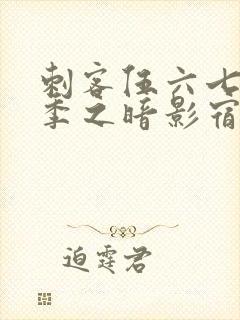 刺客伍六七
季之暗影宿
迫霆君